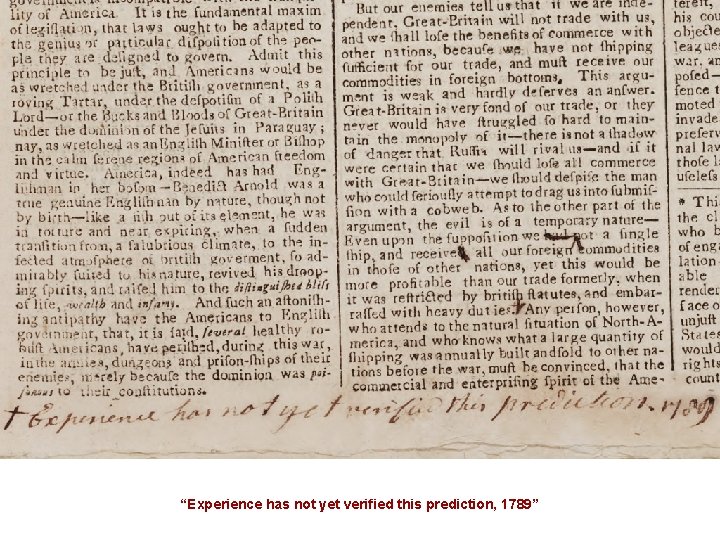 lity of America. It is the fundamental maxim
of legiſlation, that laws ought to be adapted to
the genius or particular diſpoſition of the peo-
ple they are deſigned to govern. Admit this
principle to be juſt, and Americans would be
as wretched under the Britiſh government, as a
roving Tartar, under the deſpotiſm of a Poliſh
Lord—or the Bucks and Bloods of Great-Britain
under the dominion of the Jeſuits in Paraguay;
nay, as wretched as an Engliſh Miniſter or Biſhop
in the calm ſerene regions of American freedom
and virtue. America, indeed has had Eng-
liſhman in her boſom—Benedict Arnold was a
true genuine Engliſhman by nature, though not
by birth—like a fiſh out of its element, he was
in torture and near expiring, when a ſudden
tranſition from, a ſalubrious climate, to the in-
fected atmoſphere of britiſh goverment, ſo ad-
mirably ſuited to his nature, revived his droop-
ing ſpirits, and raiſed him to the diſtinguiſhed bliſs
of life, wealth and infamy. And ſuch an aſtoniſh-
ing antipathy have the Americans to Engliſh
government, that, it is ſaid, ſeveral healthy ro-
buſt Americans, have periſhed, during this war,
in the armies, dungeons and priſon-ſhips of their
enemies, merely becauſe the dominion was poi-
ſonous to their conſtitutions.
But our enemies tell us that if we are inde-
pendent, Great-Britain will not trade with us,
and we ſhall loſe the benefits of commerce with
other nations, becauſe we have not ſhipping
ſufficient for our trade, and muſt receive our
commodities in foreign bottoms. This argu-
ment is weak and hardly deſerves an anſwer.
Great-Britain is very fond of our trade, or they
never would have ſtruggled ſo hard to main-
tain the monopoly of it—there is not a ſhadow
of danger that Ruſſia will rival us—and if it
were certain that we ſhould loſe all commerce
with Great-Britain—we ſhould deſpiſe the man
who could ſeriouſly attempt to drag us into ſubmiſ-
ſion with a cobweb. As to the other part of the
argument, the evil is of a temporary nature—
Even upon the ſuppoſition we had not a ſingle
ſhip, and receive all our foreign commodities
in thoſe of other nations, yet this would be
more profitable than our trade formerly, when
it was reſtricted by britiſh ſtatutes, and embar-
raſſed with heavy duties. Any perſon, however,
who attends to the natural ſituation of North-A-
merica, and who knows what a large quantity of
ſhipping was annually built and ſold to other na-
tions before the war, muſt be convinced, that the
commercial and enterpriſing ſpirit of the Ame-
his cou
objecte
league
war, an
poſed—
ſence t
moted
invade
preſerv
nal law
thoſe l
uſeleſs
* Thi
the cl
who b
of eng
lation
able
render
face o
unjuſt
States
would
rights
count
† Experience has not yet verified this prediction. 1789
“Experience has not yet verified this prediction, 1789”